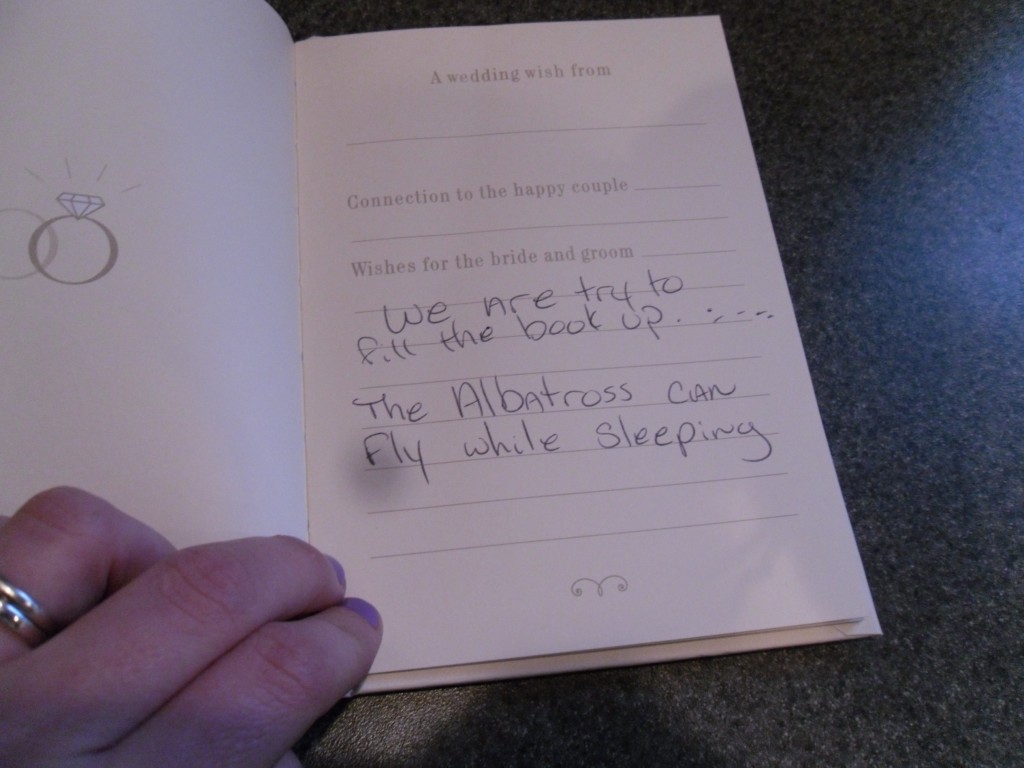 A wedding wish from
Connection to the happy couple
Wishes for the bride and groom
We are try to
fill the book up. . - - - -
The Albatross can
Fly while sleeping